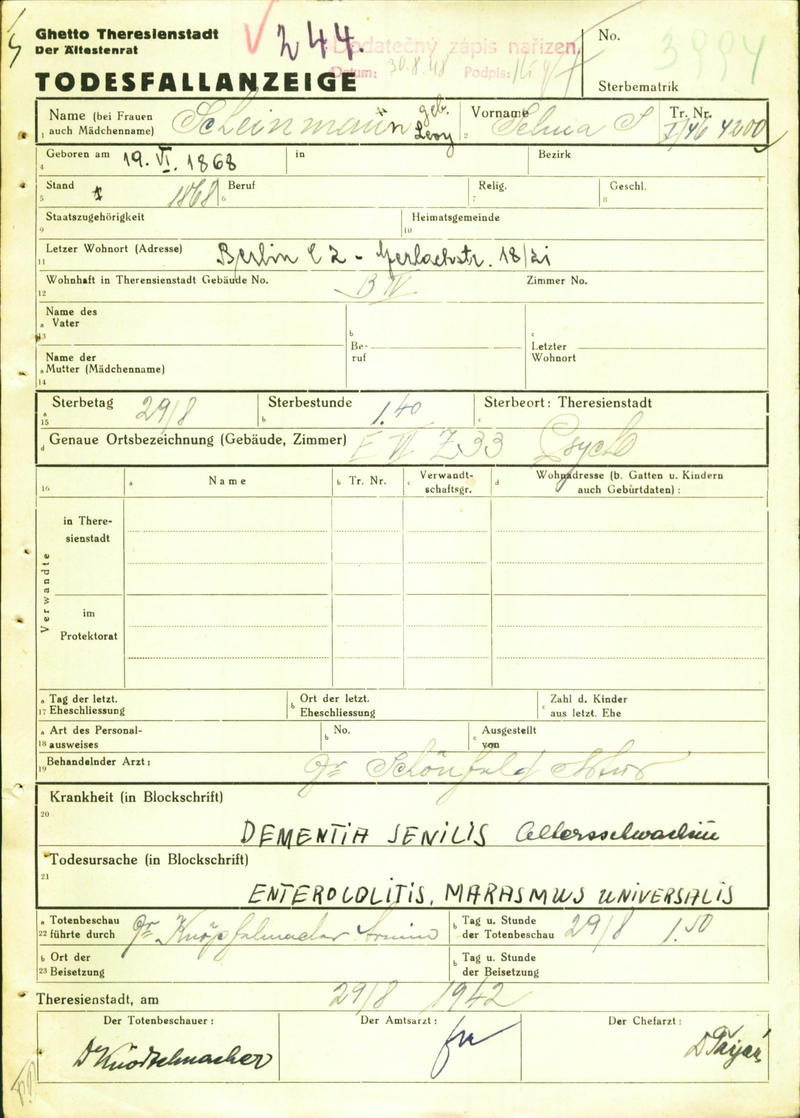 Ghetto Theresienstadt
Der Ältestenrat
244.
Dodatečný zápis nařízen.
Datum: 30.8.48 Podpis:
No. 3994
Sterbematrik
TODESFALLANZEIGE
Name (bei Frauen auch Mädchenname) Scheinmann geb. Levy
1
Vorname Selma S
2
Tr. Nr. I/46 4200
3
Geboren am 19. VI. 1868 in Bezirk
4
Stand 1868 Beruf Relig. Geschl.
5 6 7 8
Staatszugehörigkeit Heimatsgemeinde
9 10
Letzer Wohnort (Adresse) Berlin C 2 - Gerlachstr. 18/21
11
Wohnhaft in Theresienstadt Gebäude No. B IV Zimmer No.
12
Name des
a Vater
13
b Be-ruf
c Letzter Wohnort
Name der
a Mutter (Mädchenname)
14
a Sterbetag 29/8 b Sterbestunde 1.40 c Sterbeort: Theresienstadt
15
d Genaue Ortsbezeichnung (Gebäude, Zimmer) E VI Z 33 Psych
16 a Name b Tr. Nr. c Verwandt-schaftsgr. d Wohnadresse (b. Gatten u. Kindern auch Geburtdaten) :
Verwandte
in There-
sienstadt
im
Protektorat
a Tag der letzt. b Ort der letzt. c Zahl d. Kinder
17 Eheschliessung Eheschliessung aus letzt. Ehe
a Art des Personal- b No. c Ausgestellt
18 ausweises von
19 Behandelnder Arzt : Dr Schönfeld Artur
Krankheit (in Blockschrift)
20
DEMENTIA SENILIS Altersschwachsinn
Todesursache (in Blockschrift)
21
ENTEROCOLITIS, MARASMUS UNIVERSALIS
a Totenbeschau b Tag u. Stunde
22 führte durch Dr. Knöpfelmacher Armin der Totenbeschau 29/8 1.50
b Ort der b Tag u. Stunde
23 Beisetzung der Beisetzung
Theresienstadt, am 29/8 1942
Der Totenbeschauer : Der Amtsarzt : Der Chefarzt :
Dr Knöpfelmacher